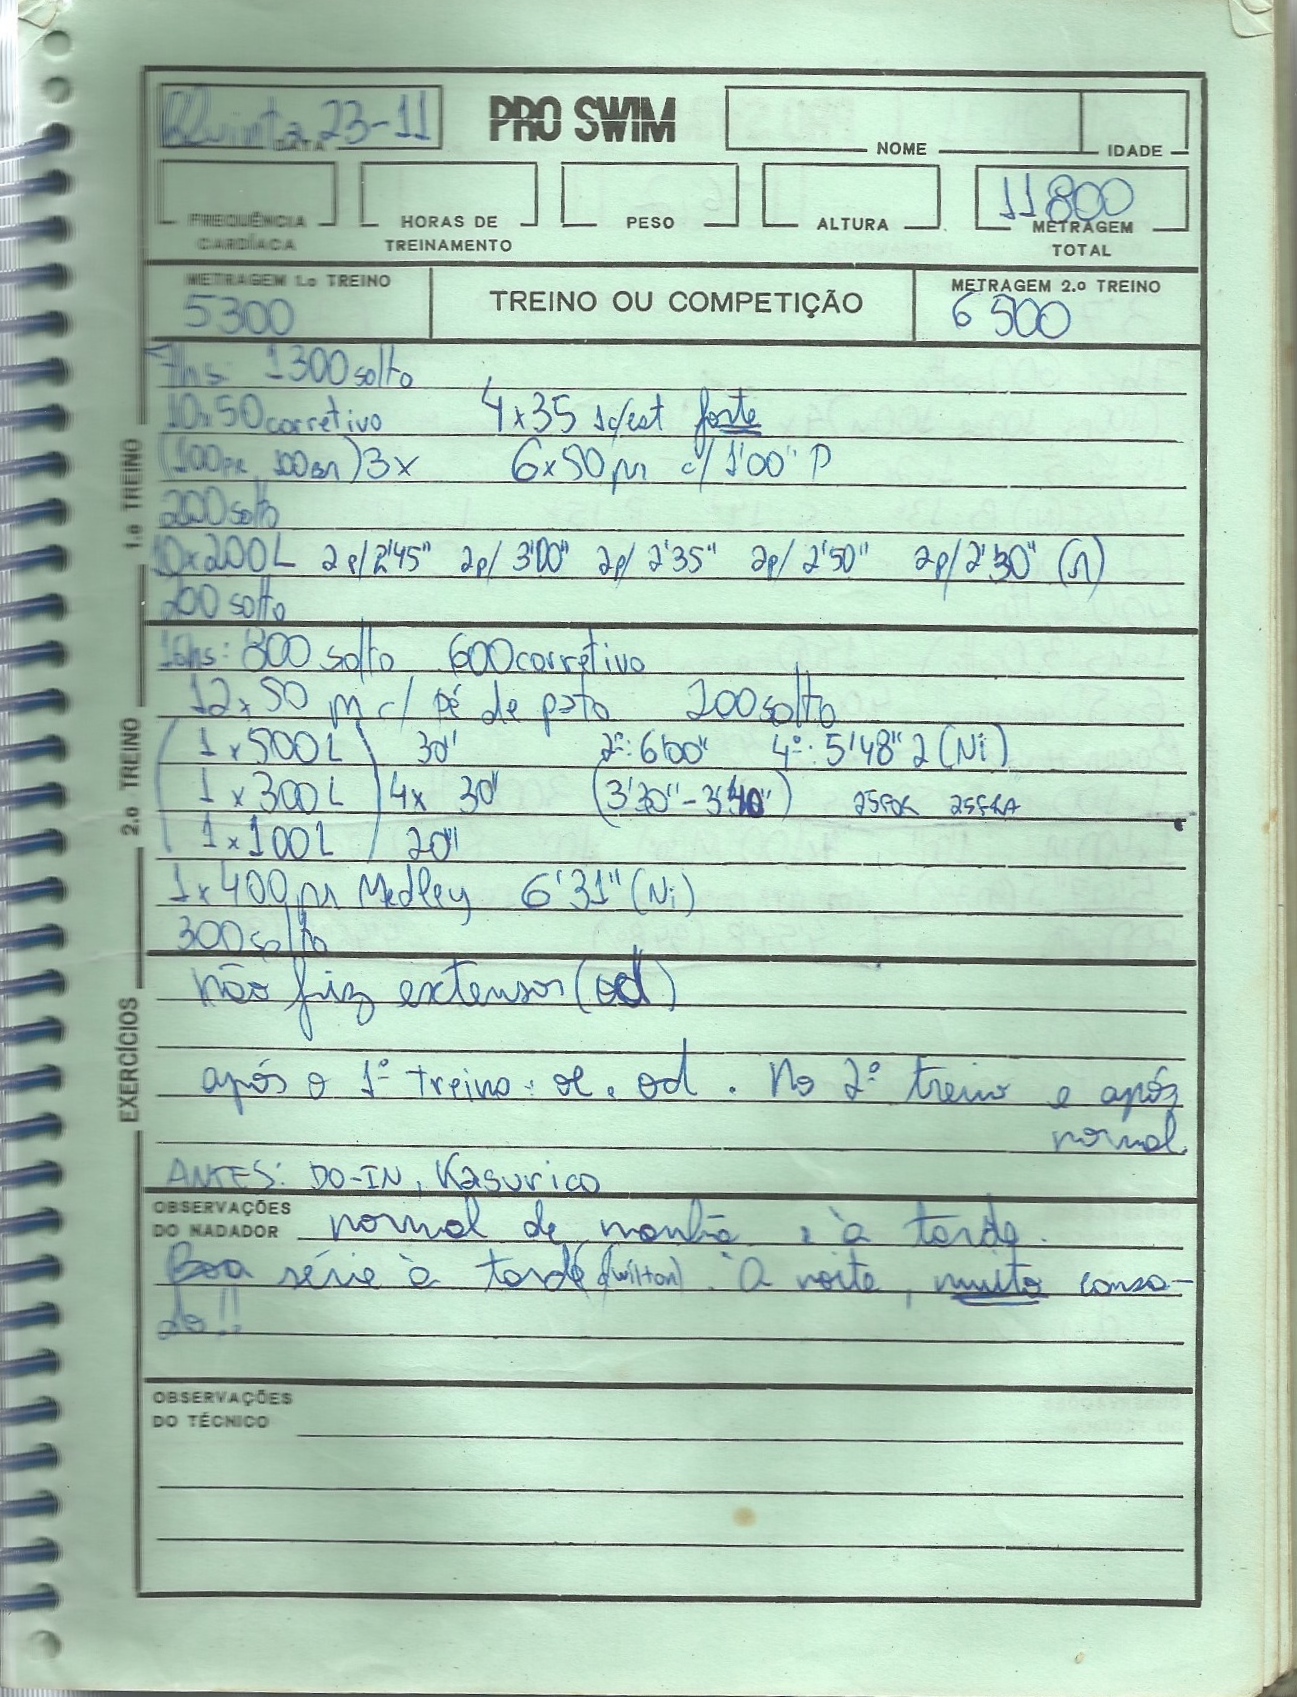 Quinta 23-11
DATA
PRO SWIM
NOME
IDADE
FREQUÊNCIA CARDÍACA
HORAS DE TREINAMENTO
PESO
ALTURA
11800
METRAGEM TOTAL
METRAGEM 1.o TREINO
5300
TREINO OU COMPETIÇÃO
METRAGEM 2.o TREINO
6500
1.o TREINO
7hs: 1300 solto
10x50 corretivo 4x35 1c/est forte
(100PR, 100BR)3x 6x50 m c/ 1'00" P
200 solto
10x200L 2p/2'45" 2p/3'00" 2p/2'35" 2p/2'50" 2p/2'30"
200 solto
2.o TREINO
16hs: 800 solto 600 corretivo
12x50 m c/ pé de pato 200 solto
1x500L 30" 2º: 6'00" 4º: 5'48"2 (Ni)
1x300L 4x 30" (3'30"-3'40")
1x100L 20"
1x400 m Medley 6'31" (Ni)
300 solto
EXERCÍCIOS
não fiz extensor (od)
após o 1º treino: oe, od. No 2º treino e após
normal.
ANTES: DO-IN, Kasurico
OBSERVAÇÕES DO NADADOR
normal de manhã e à tarde.
Boa série à tarde (Wilton). À noite, muito cansa-
do!!
OBSERVAÇÕES DO TÉCNICO